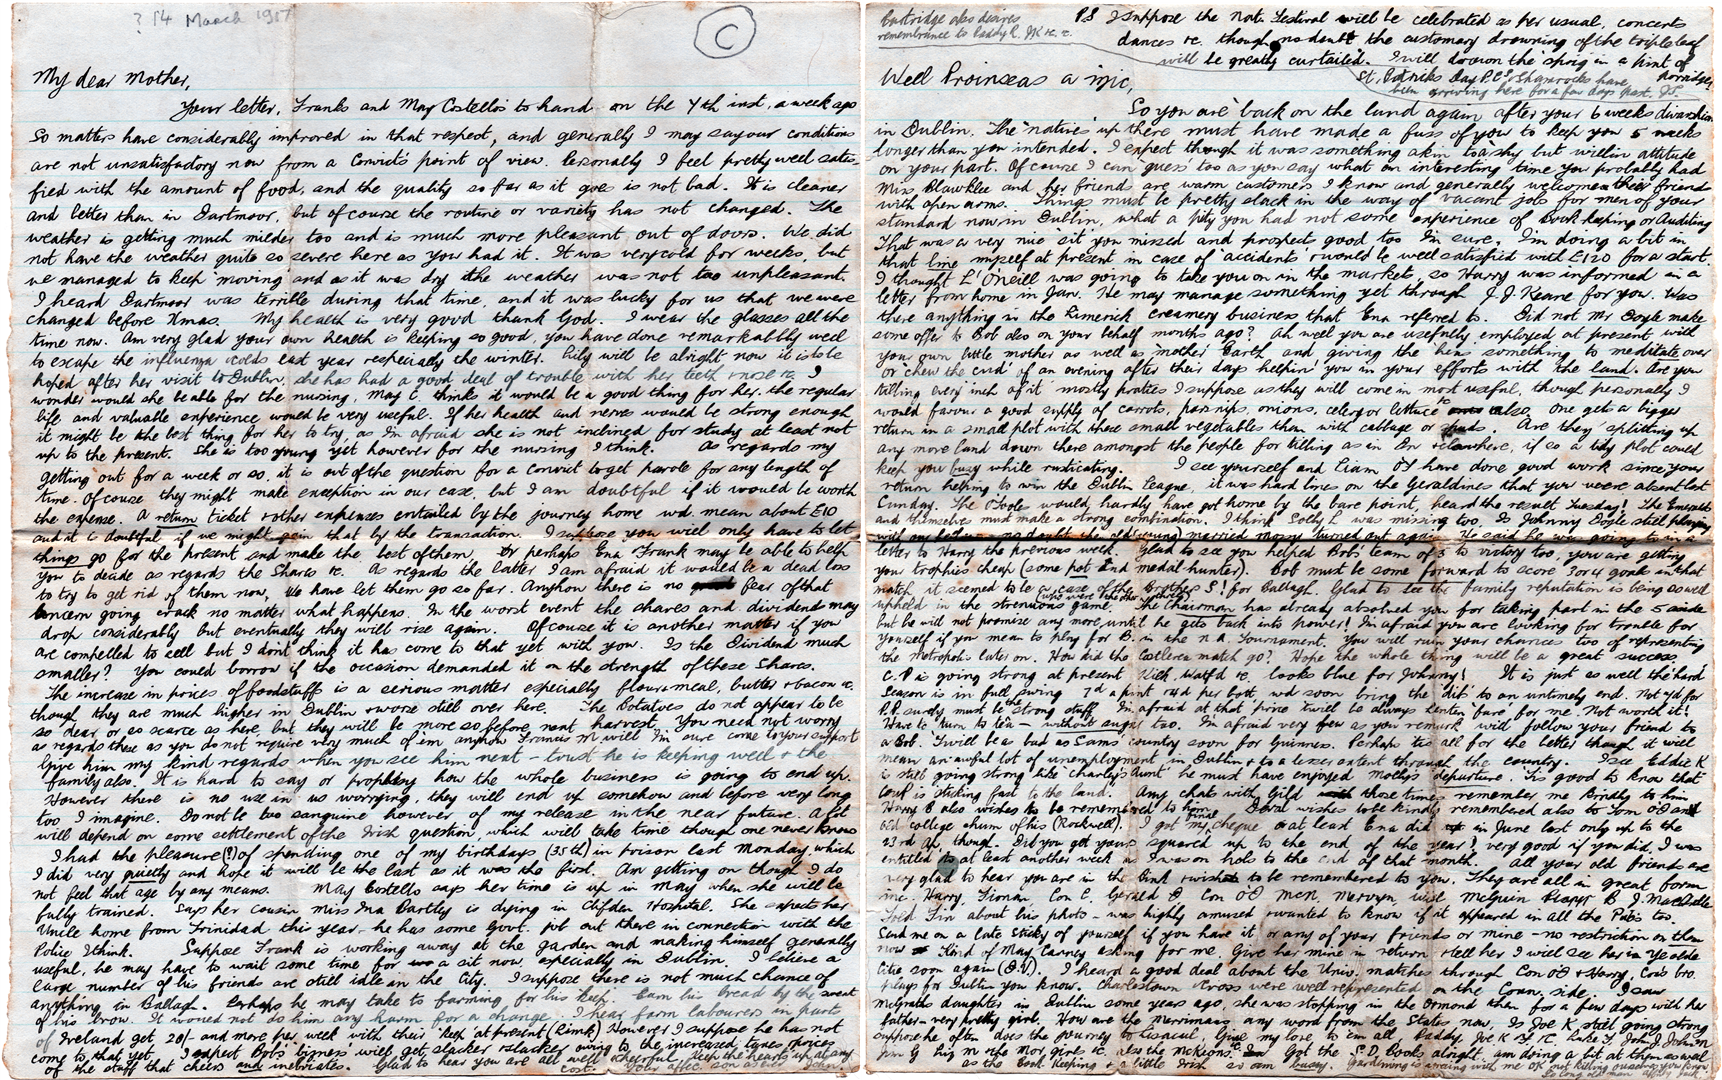 ? 14 March 1917
C
My dear Mother,
Your letter, Franks and May Costello's to hand on the 7th inst, a week ago
So matters have considerably improved in that respect, and generally I may say our conditions
are not unsatisfactory now from a Convict's point of view. Personally I feel pretty well satis-
fied with the amount of food, and the quality so far as it goes is not bad. It is cleaner
and better than in Dartmoor, but of course the routine or variety has not changed. The
weather is getting much milder too and is much more pleasant out of doors. We did
not have the weather quite so severe here as you had it. It was very cold for weeks, but
we managed to keep 'moving' and as it was dry the weather was not too unpleasant.
I heard Dartmoor was terrible during that time, and it was lucky for us that we were
changed before Xmas. My health is very good thank God. I wear the glasses all the
time now. Am very glad your own health is keeping so good, you have done remarkably well
to escape the influenza & colds last year & especially the winter. Lily will be alright now it is to be
hoped after her visit to Dublin, she has had a good deal of trouble with her teeth & nose &c. I
wonder would she be able for the nursing, May C. thinks it would be a good thing for her, the regular
life and valuable experience would be very useful. If her health and nerve would be strong enough
it might be the best thing for her to try, as I'm afraid she is not inclined for study at least not
up to the present. She is too young yet however for the nursing I think. As regards my
getting out for a week or so, it is out of the question for a Convict to get parole for any length of
time. Of course they might make exception in our case, but I am doubtful if it would be worth
the expense. A return ticket & other expenses entailed by the journey home wd. mean about £10
and it is doubtful if we might gain that by the transaction. I suppose you will only have to let
things go for the present and make the best of them. Or perhaps Ena & Frank may be able to help
you to decide as regards the Shares &c. As regards the latter I am afraid it would be a dead loss
to try to get rid of them now, We have let them go so far. Anyhow there is no fear of that
concern going crack no matter what happens. In the worst event the shares and dividend may
drop considerably but eventually they will rise again. Of course it is another matter if you
are compelled to sell but I don't think it has come to that yet with you. Is the Dividend much
smaller? You could borrow if the occasion demanded it on the strength of these Shares.
The increase in prices of foodstuffs is a serious matter especially flour & meal, butter & bacon &c.
though they are much higher in Dublin & worse still over here. The Potatoes do not appear to be
so dear or so scarce as here, but they will be more so before next harvest. You need not worry
as regards these as you do not require very much of 'em anyhow Francis M will I'm sure come to your support
Give him my kind regards when you see him next - trust he is keeping well & the
family also. It is hard to say or prophesy how the whole business is going to end up.
However there is no use in us worrying, they will end up somehow and before very long
too I imagine. Do not be too sanguine however of my release in the near future. A lot
will depend on some settlement of the Irish question, which will take time though one never knows
I had the pleasure (?) of spending one of my birthdays (35th) in prison last Monday, which
I did very quietly and hope it will be the last as it was the first. Am getting on though I do
not feel that age by any means. May Costello says her time is up in May when she will be
fully trained. Says her cousin Miss Ina Bartley is dying in Clifden Hospital. She expects her
Uncle home from Trinidad this year - he has some Govt. job out there in connection with the
Police I think. Suppose Frank is working away at the garden and making himself generally
useful, he may have to wait some time for a sit now, especially in Dublin. I believe a
large number of his friends are still idle in the City. I suppose there is not much chance of
anything in Ballagh. Perhaps he may take to farming, for his keep. Earn his bread by the sweat
of his brow. It would not do him any harm for a change. I hear farm labourers in parts
of Ireland get 20/- and more per week with their 'keep' at present (Limk) However I suppose he has not
come to that yet. I expect Bob's bizness will get slacker & slacker owing to the increased taxes & prices
of the stuff that cheers and inebriates. Glad to hear you are all well & cheerful. Keep the hearts up at any
cost. Your affec. son as ever John.
Partridge also desires
remembrance to Paddy R. JK &c. &c.
PS I suppose the Nat. Festival will be celebrated as per usual, concerts
dances &c. though no doubt the customary drowning of the triple leaf
will be greatly curtailed. I will drown the sprig in a pint of
porridge,
St. Patricks Day P.C.s & Shamrocks have
been arriving here for a few days past. JS.
Well Proinseas a mic,
So you are back on the land again after your 6 weeks diversion
in Dublin. The 'natives' up there must have made a fuss of you to keep you 5 weeks
longer than you intended. I expect though it was something akin to a 'shy but willin' attitude
on your part. Of course I can guess too as you say what an interesting time you probably had
and her friends are warm customers I know and generally welcome their friends
with open arms. Things must be pretty slack in the way of vacant jobs for men of your
standard now in Dublin, what a pity you had not some experience of Book keeping or Auditing
That was a very nice 'sit' you missed and prospects good too I'm sure. I'm doing a bit in
that line myself at present in case of 'accidents' & would be well satisfied with £120 for a start.
I thought L' O'Neill was going to take you on in the market, so Harry was informed in a
letter from home in Jan. He may manage something yet through J.J. Keane for you. Was
there anything in the Limerick creamery business that Ena referred to. Did not Mr Doyle make
some offer to Bob also on your behalf months ago? Ah well you are usefully employed at present with
your own little mother as well as 'mother' Earth and giving the hens something to meditate over
or 'chew the cud' of an evening after their days helpin' you in your efforts with the land. Are you
tilling every inch of it? mostly praties I suppose as they will come in most useful, though personally I
would favour a good supply of carrots, parsnips, onions, celery or lettuce &c also. One gets a bigger
return in a small plot with these small vegetables than with cabbage or spuds. Are they splitting up
any more land down there amongst the people for tilling as in Dn & elsewhere, if so a tidy plot could
keep you busy while rusticating. I see yourself and Liam O'S have done good work since your
return helping to win the Dublin League, it was hard lines on the Geraldines that you were absent last
Sunday. The O'Tooles would hardly have got home by the bare point, heard the result Tuesday! The Emeralds
and themselves must make a strong combination. I think Solly L was missing too. Is Johnny Doyle still playing
letter to Harry the previous week. Glad to see you helped Bob's team of 5 to victory too, you are getting
your trophies cheap (some pot and medal hunter). Bob must be some forward to score 3 or 4 goals in that
match, it seemed to be a case of the Brothers S! for Ballagh. Glad to see the family reputation is being so well
upheld in the strenuous game. The Chairman has already absolved you for taking part in the 5 aside
but he will not promise any more until he gets back into power! I'm afraid you are looking for trouble for
yourself if you mean to play for B. in the N.A. Tournament. You will ruin your chances too of representing
the Metropolis later on. How did the Castlerea match go? Hope the whole thing will be a great success
C.P is going strong at present Kick, Watfd &c. looks blue for Johnny! It is just as well the 'hard'
Season is in full swing 7d a pint & 4d per bott. wd soon bring the 'dit' to an untimely end. Not yd for
P.P. surely must be the strong stuff. I'm afraid at that price 'twill be always Lenten 'fare' for me. Not worth it!
Have to turn to tea - without sugar too. I'm afraid very few as you remark will follow your friend to
a Bob. 'Twill be as bad as Sam's country soon for Guinness. Perhaps 'tis all for the better though it will
mean an awful lot of unemployment in Dublin & to a lesser extent through the country. I see Eddie K
is still going strong like 'Charley's Aunt' he must have enjoyed Molly's departure. 'Tis good to know that
Jack is sticking fast to the land. Any chats with Gild those times remember me kindly to him
Harry B also wishes to be remembered to him. Deval wishes to be kindly remembered also to Tom O'D an
old college chum of his (Rockwell). I got my final cheque & at least Ena did in June last only up to the
23rd Ap. though. Did you get yours squared up to the end of the year? very good if you did. I was
entitled to at least another week as I was on hols to the end of that month. All your old friends are
very glad to hear you are in the Pink & wish to be remembered to you. They are all in great form
inc. Harry, Fionan, Con C, Gerald B Con O'D McN. Mervyn, Wise McGuin
Told Fin about his photo - was highly amused & wanted to know if it appeared in all the Pubs too.
Send me on a late sticky of yourself if you have it, or any of your friends or mine - no restriction on them
now. Kind of May Carney asking for me. Give her mine in return & tell her I will see her in Ye olde
Citie soon again (D.V.). I heard a good deal about the Univ. matches through Con O'D & Harry, Con's bro.
plays for Dublin you know. Charlestown & Cross were well represented on the Conn. side. I saw
McGraths daughter in Dublin some years ago, she was stopping in the Ormond then for a few days with her
father - very pretty girl. How are the Merrimans any word from the States now. Is Joe K. still going strong
suppose he often does the journey to Lisacul, Give my love to em all, Paddy, Joe K
also the McKeons. Got the S.D. books alright, am doing a bit at them as well
as the Book Keeping & a little Irish so am busy. Gardening is
So long old man affly Jack.